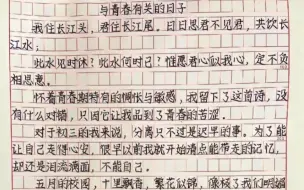 与青春有关的日子
我住长江头，君住长江尾。日日思君不见君，共饮长
江水；
此水几时休？此水何时已？惟愿君心似我心，定不负
相思意。
怀着青春期特有的惆怅与敏感，我留下了这首诗，没
有什么对错，只因它让我品到了青春的苦涩。
对于初三的我来说，分离只不过是迟早的事。为了能
让自己走得心安，很早以前我就开始清点能带走的记忆，
却还是泪流满面，不能自已。
五月的校园，十里飘香，繁花似锦，像极了我们明媚